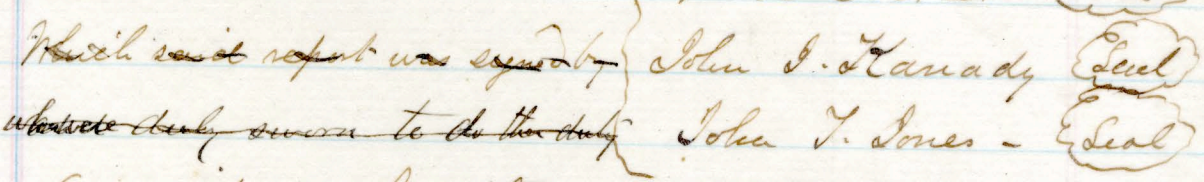 Which said report was signed by John I. Kanady Seal
who were duly sworn to do ther duty John T. Jones - Seal